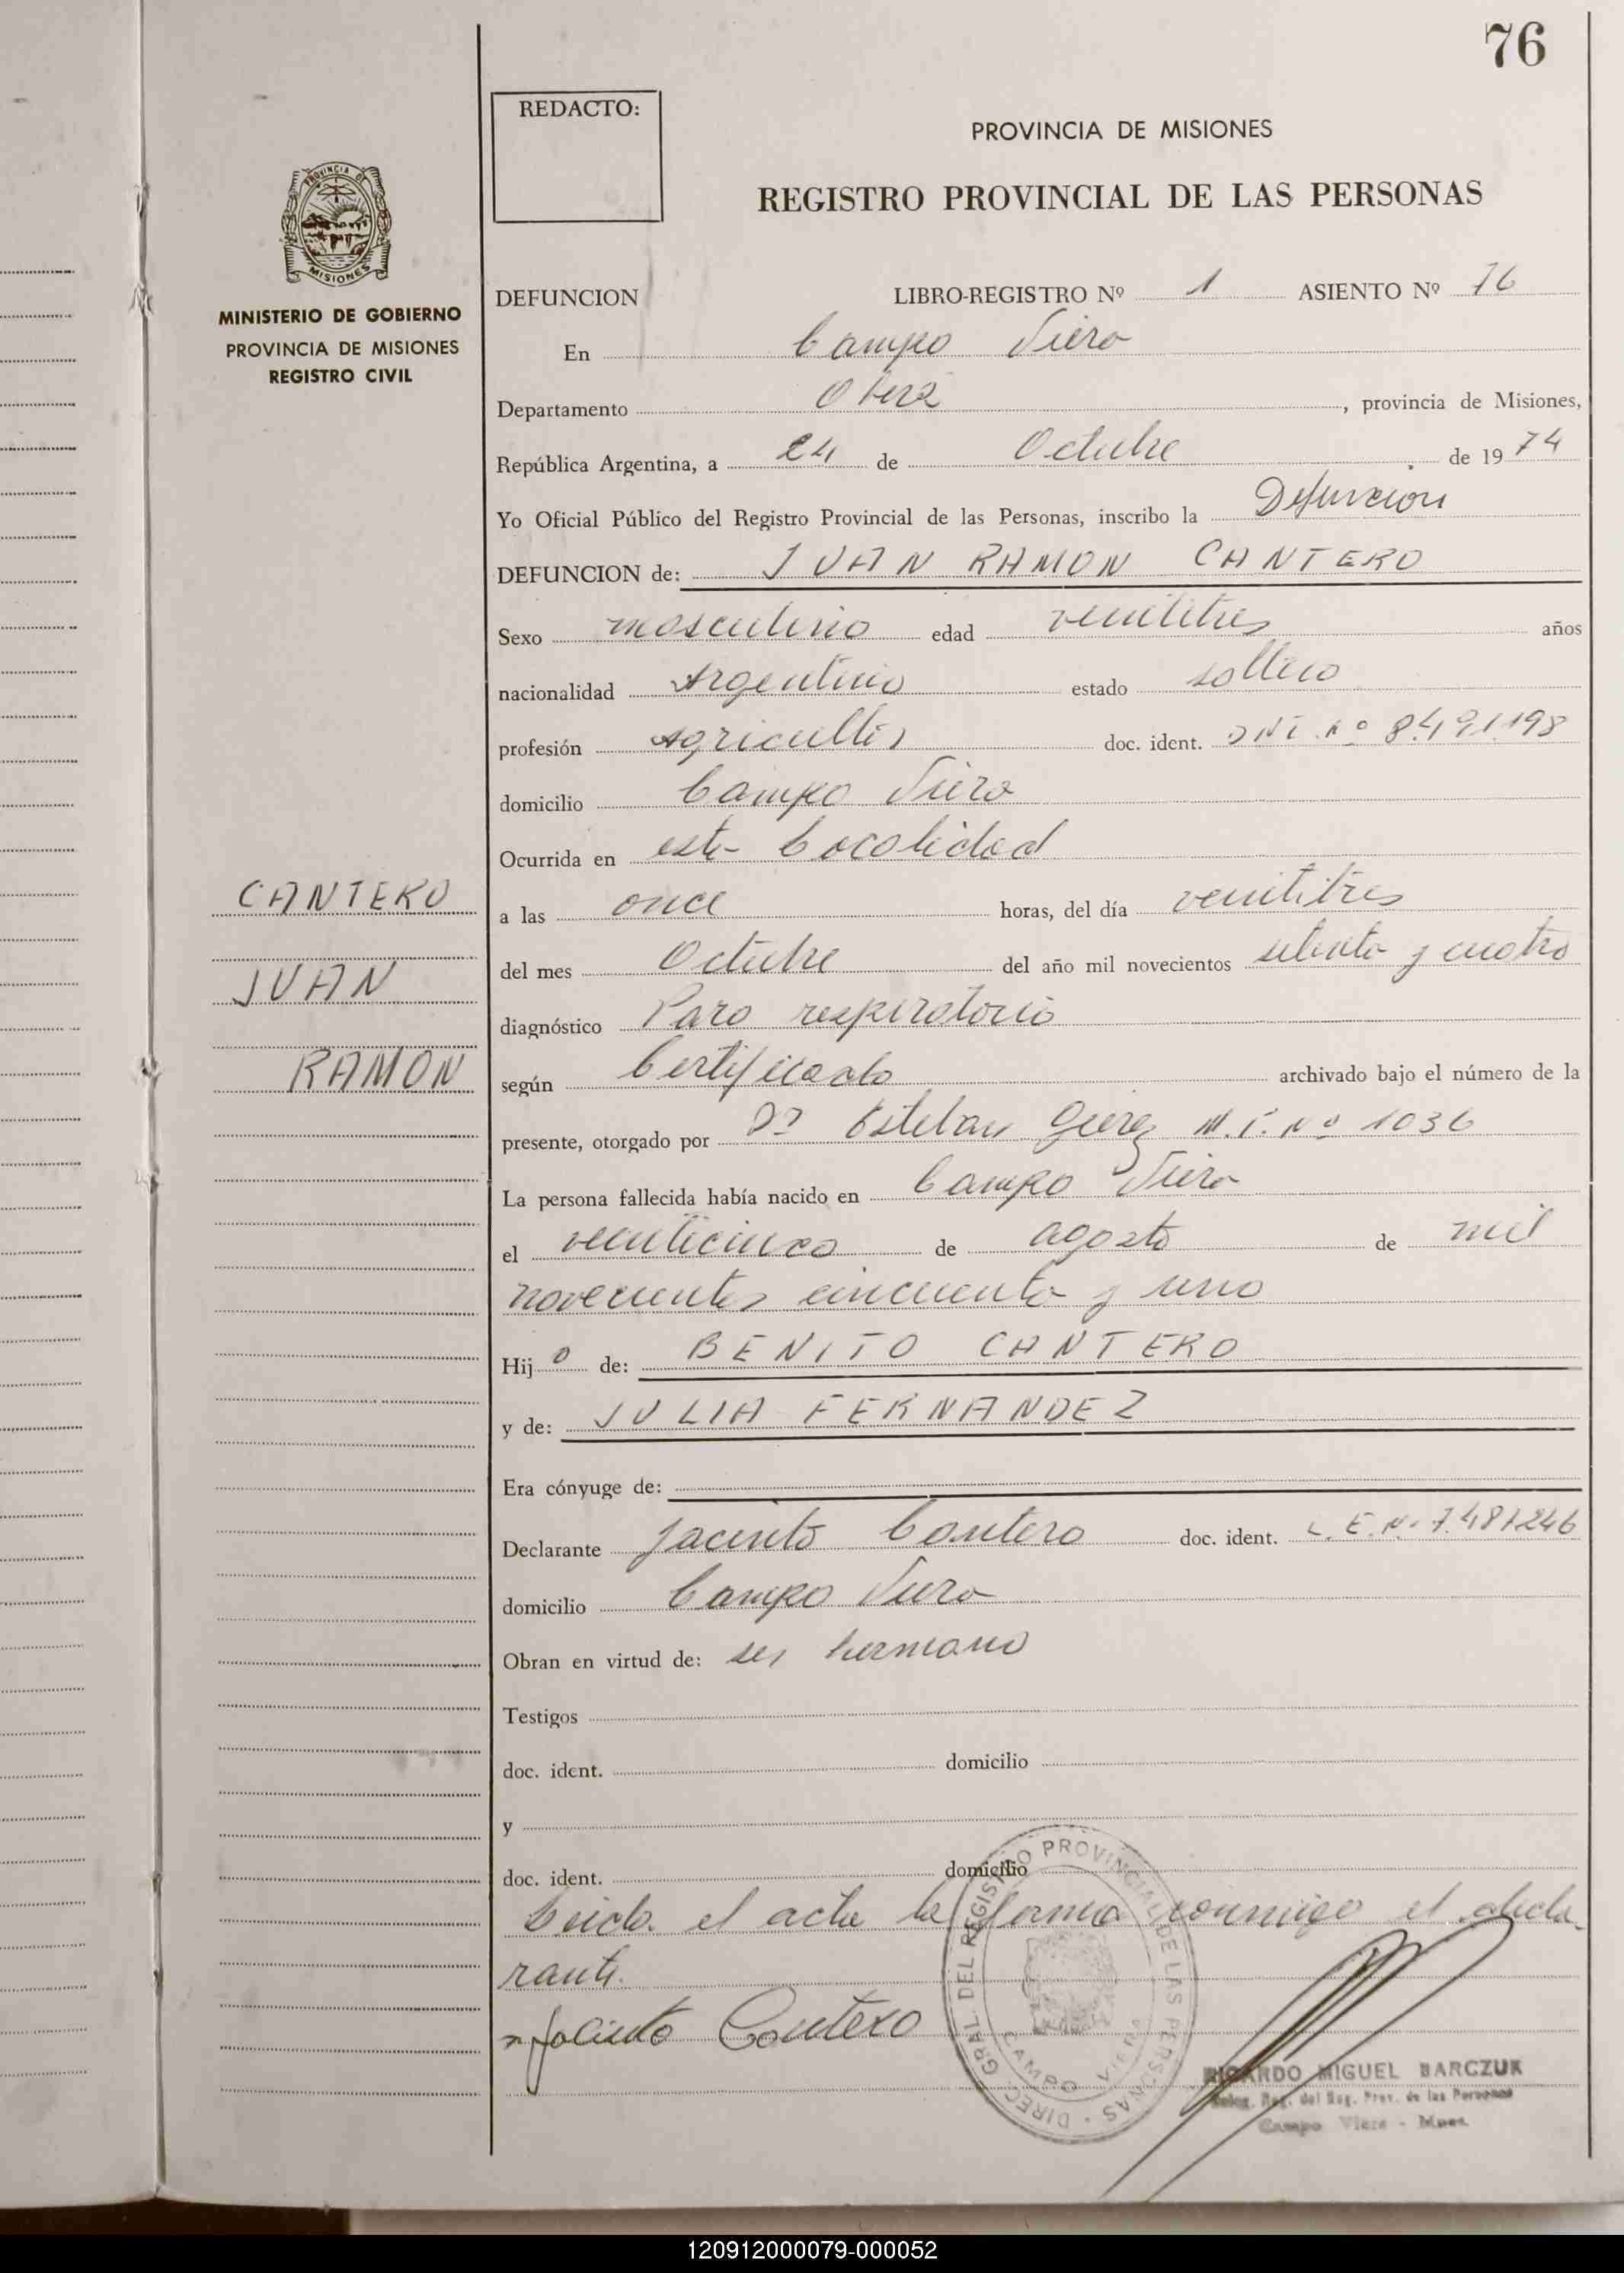 76
REDACTO:
PROVINCIA DE MISIONES
REGISTRO PROVINCIAL DE LAS PERSONAS
PROVINCIA DE
MISIONES
MINISTERIO DE GOBIERNO
PROVINCIA DE MISIONES
REGISTRO CIVIL
DEFUNCION LIBRO-REGISTRO Nº 1 ASIENTO Nº 76
En Campo Viera
Departamento Oberá, provincia de Misiones,
República Argentina, a 24 de Octubre de 1974
Yo Oficial Público del Registro Provincial de las Personas, inscribo la Defuncion
DEFUNCION de: JUAN RAMON CANTERO
Sexo masculino edad veintitres años
nacionalidad Argentino estado soltero
profesión Agricultor doc. ident. DNI. Nº 8.491.198
domicilio Campo Viera
Ocurrida en esta Localidad
a las once horas, del día veintitres
del mes Octubre del año mil novecientos setenta y cuatro
diagnóstico Paro respiratorio
según Certificado archivado bajo el número de la
presente, otorgado por Dr Esteban M.P. Nº 1036
La persona fallecida había nacido en Campo Viera
el veinticinco de agosto de mil
novecientos cincuenta y uno
Hijo de: BENITO CANTERO
y de: JULIA FERNANDEZ
Era cónyuge de:
Declarante Jacinto Cantero doc. ident. L.E.Nº 7.481246
domicilio Campo Viera
Obran en virtud de: ser hermano
Testigos
doc. ident. domicilio
y
doc. ident. domicilio
Leida el acta la firma conmigo el decla
rante.
Jacinto Cantero
CANTERO
JUAN
RAMON
DIREC. GRAL. DEL REGISTRO PROVINCIAL DE LAS PERSONAS
CAMPO VIERA
RICARDO MIGUEL BARCZUK
Deleg. Reg. del Reg. Prov. de las Personas
Campo Viera - Mnes.
120912000079-000052